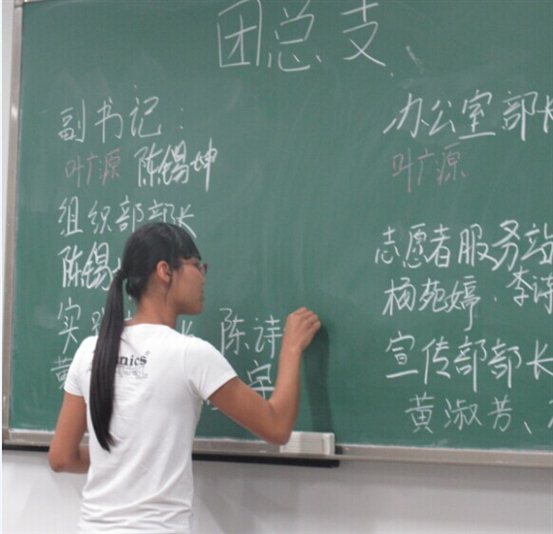 团总支
副书记：
叶广源 陈锡坤
组织部部长
陈锡
实 长 陈诗
黄 宇
办公室部长
叶广源
志愿者服务站
杨苑婷、李诗
宣传部部长
黄淑芳、
nics